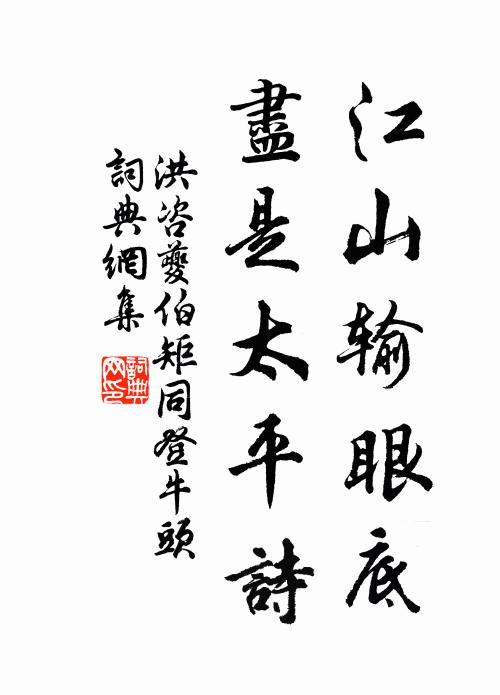 江山输眼底
盡是太平詩
洪咨夔伯矩同登牛頭
詞典網集
詞典網印